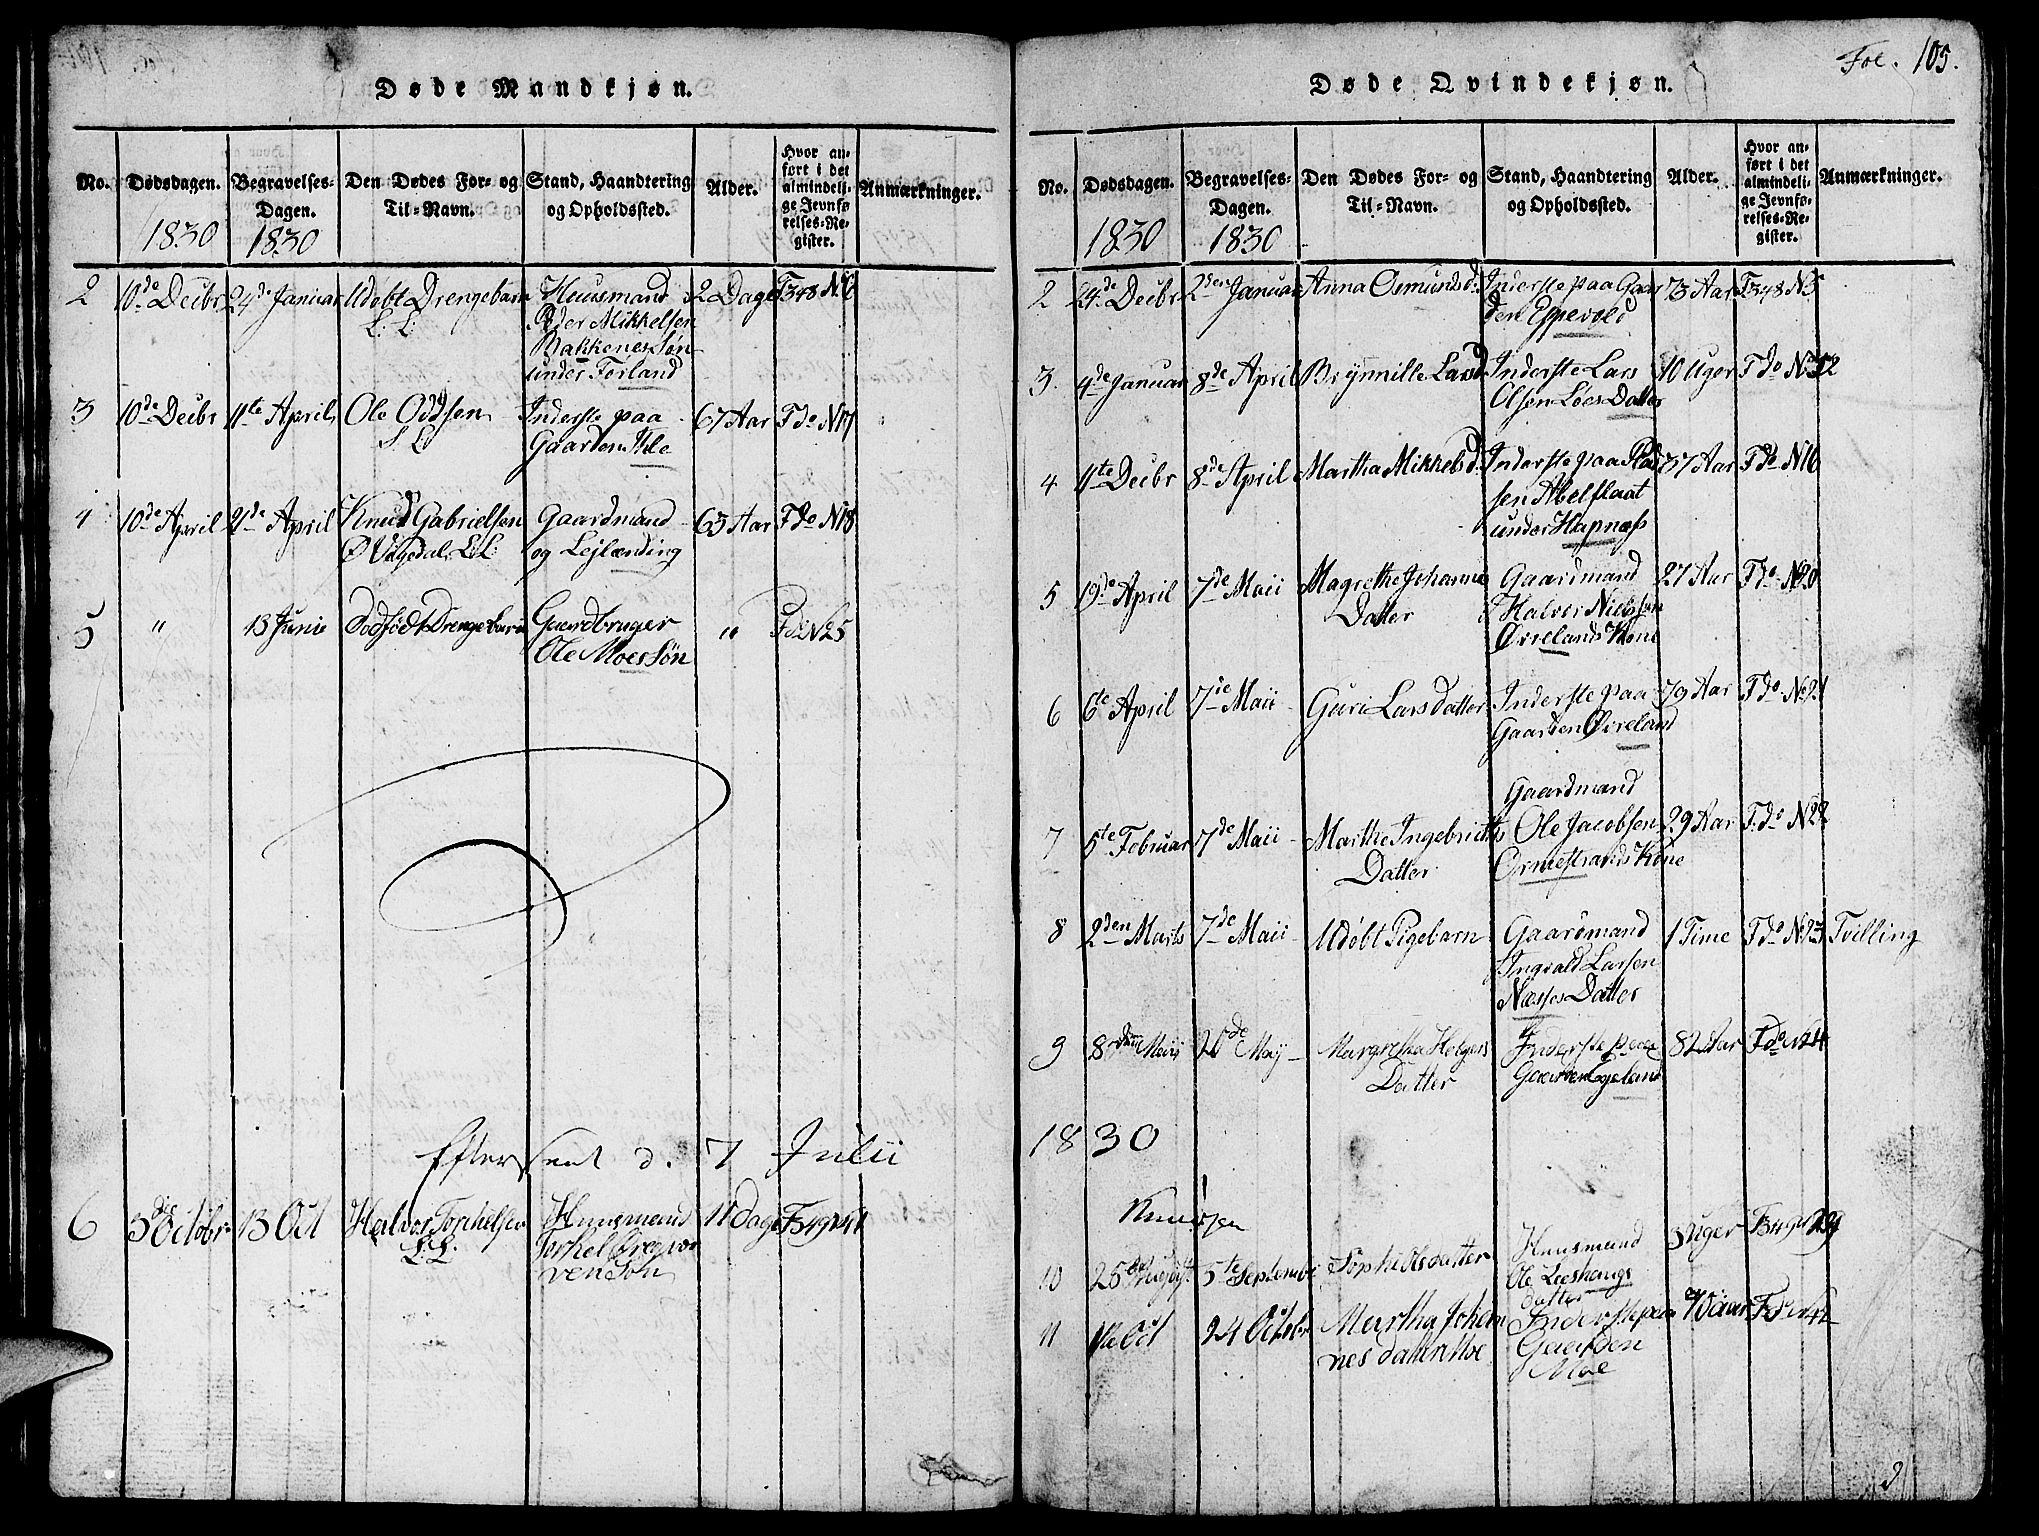 Døde Mandkjøn.
No. Dødsdagen. Begravelses-Dagen. Den Dødes For- og Til-Navn. Stand, Haandtering og Opholdssted. Alder. Hvor anført i det almindelige Jevnførelses-Register. Anmærkninger.
1830 1830
2 10de Decbr 24de Januar Udøbt Drengebarn Huusmand 2 Dage F348 N 6
L: L: Peder Mikkelsen
Bakkenes Søn
under Førland
3 10de Decbr 11te April Ole Oddsen Inderste paa 67 Aar F do N 17
L Gaarden
4 10de April 21de April Knud Gabrielsen Gaardmand 63 Aar F do N 18
L:L: og Lejlænding
5 " 13 Junie Dødfødt Drengebarn Gaardbruger " F do N 25
Ole Moes Søn
Efterseet d. 7 Julii
6 3die Octobr 13 Oct Halvor Torkelsen Huusmand 11 dage F349 N 41
L.L. Torkel
ven Søn
Fol. 105.
Døde Qvindekjøn.
No. Dødsdagen. Begravelses-Dagen. Den Dødes For- og Til-Navn. Stand, Haandtering og Opholdssted. Alder. Hvor anført i det almindelige Jevnførelses-Register. Anmærkninger.
1830 1830
2 24de Decbr 2den Januar Anna Osmundsd: Inderste paa Gaar 73 Aar F348 N 5
den Eppevold
3. 4de Januar 8de April Brynnille Larsd Inderste Lars 10 Uger F do N 12
Olsen Løes Datter
4 11te Decbr 8de April Martha Mikkelsd: Inderste paa Plad 37 Aar F do N 16
sen Abelflaat
under Hapnæss
5 19de April 7de Maii Magrethe Johannes Gaardmand 27 Aar F do N 20
Datter Halvor Nielssøn
Ørrelands Kone
6 6te April 7de Maii Guri Larsdatter Inderste paa 79 Aar F do N 21
Gaarden Ørreland
Gaardmand
7 5te Februar 7de Maii Marthe Ingebricths Ole Jacobsen 29 Aar F. do N 22
Datter Ormestrands Kone
8 2den Marts 7de Maii Udøbt Pigebarn Gaardmand 1 Time F do N 23 Tvilling
Ingvald Larsen
Næsses Datter
9 8den Maij 20de Maij Margretha Helges Inderste paa 82 Aar F do N 24
Datter Gaarden Egeland
1830
10 25de August 5te Septembr Sophi Olsdatter Huusmand 3 Uger F349 N 39
Ole Leeshougs
datter
11 1te Oct 24 Octobr Martha Johan Inderste paa Aar F do N 42
nes datter Moe Gaarden
Moe